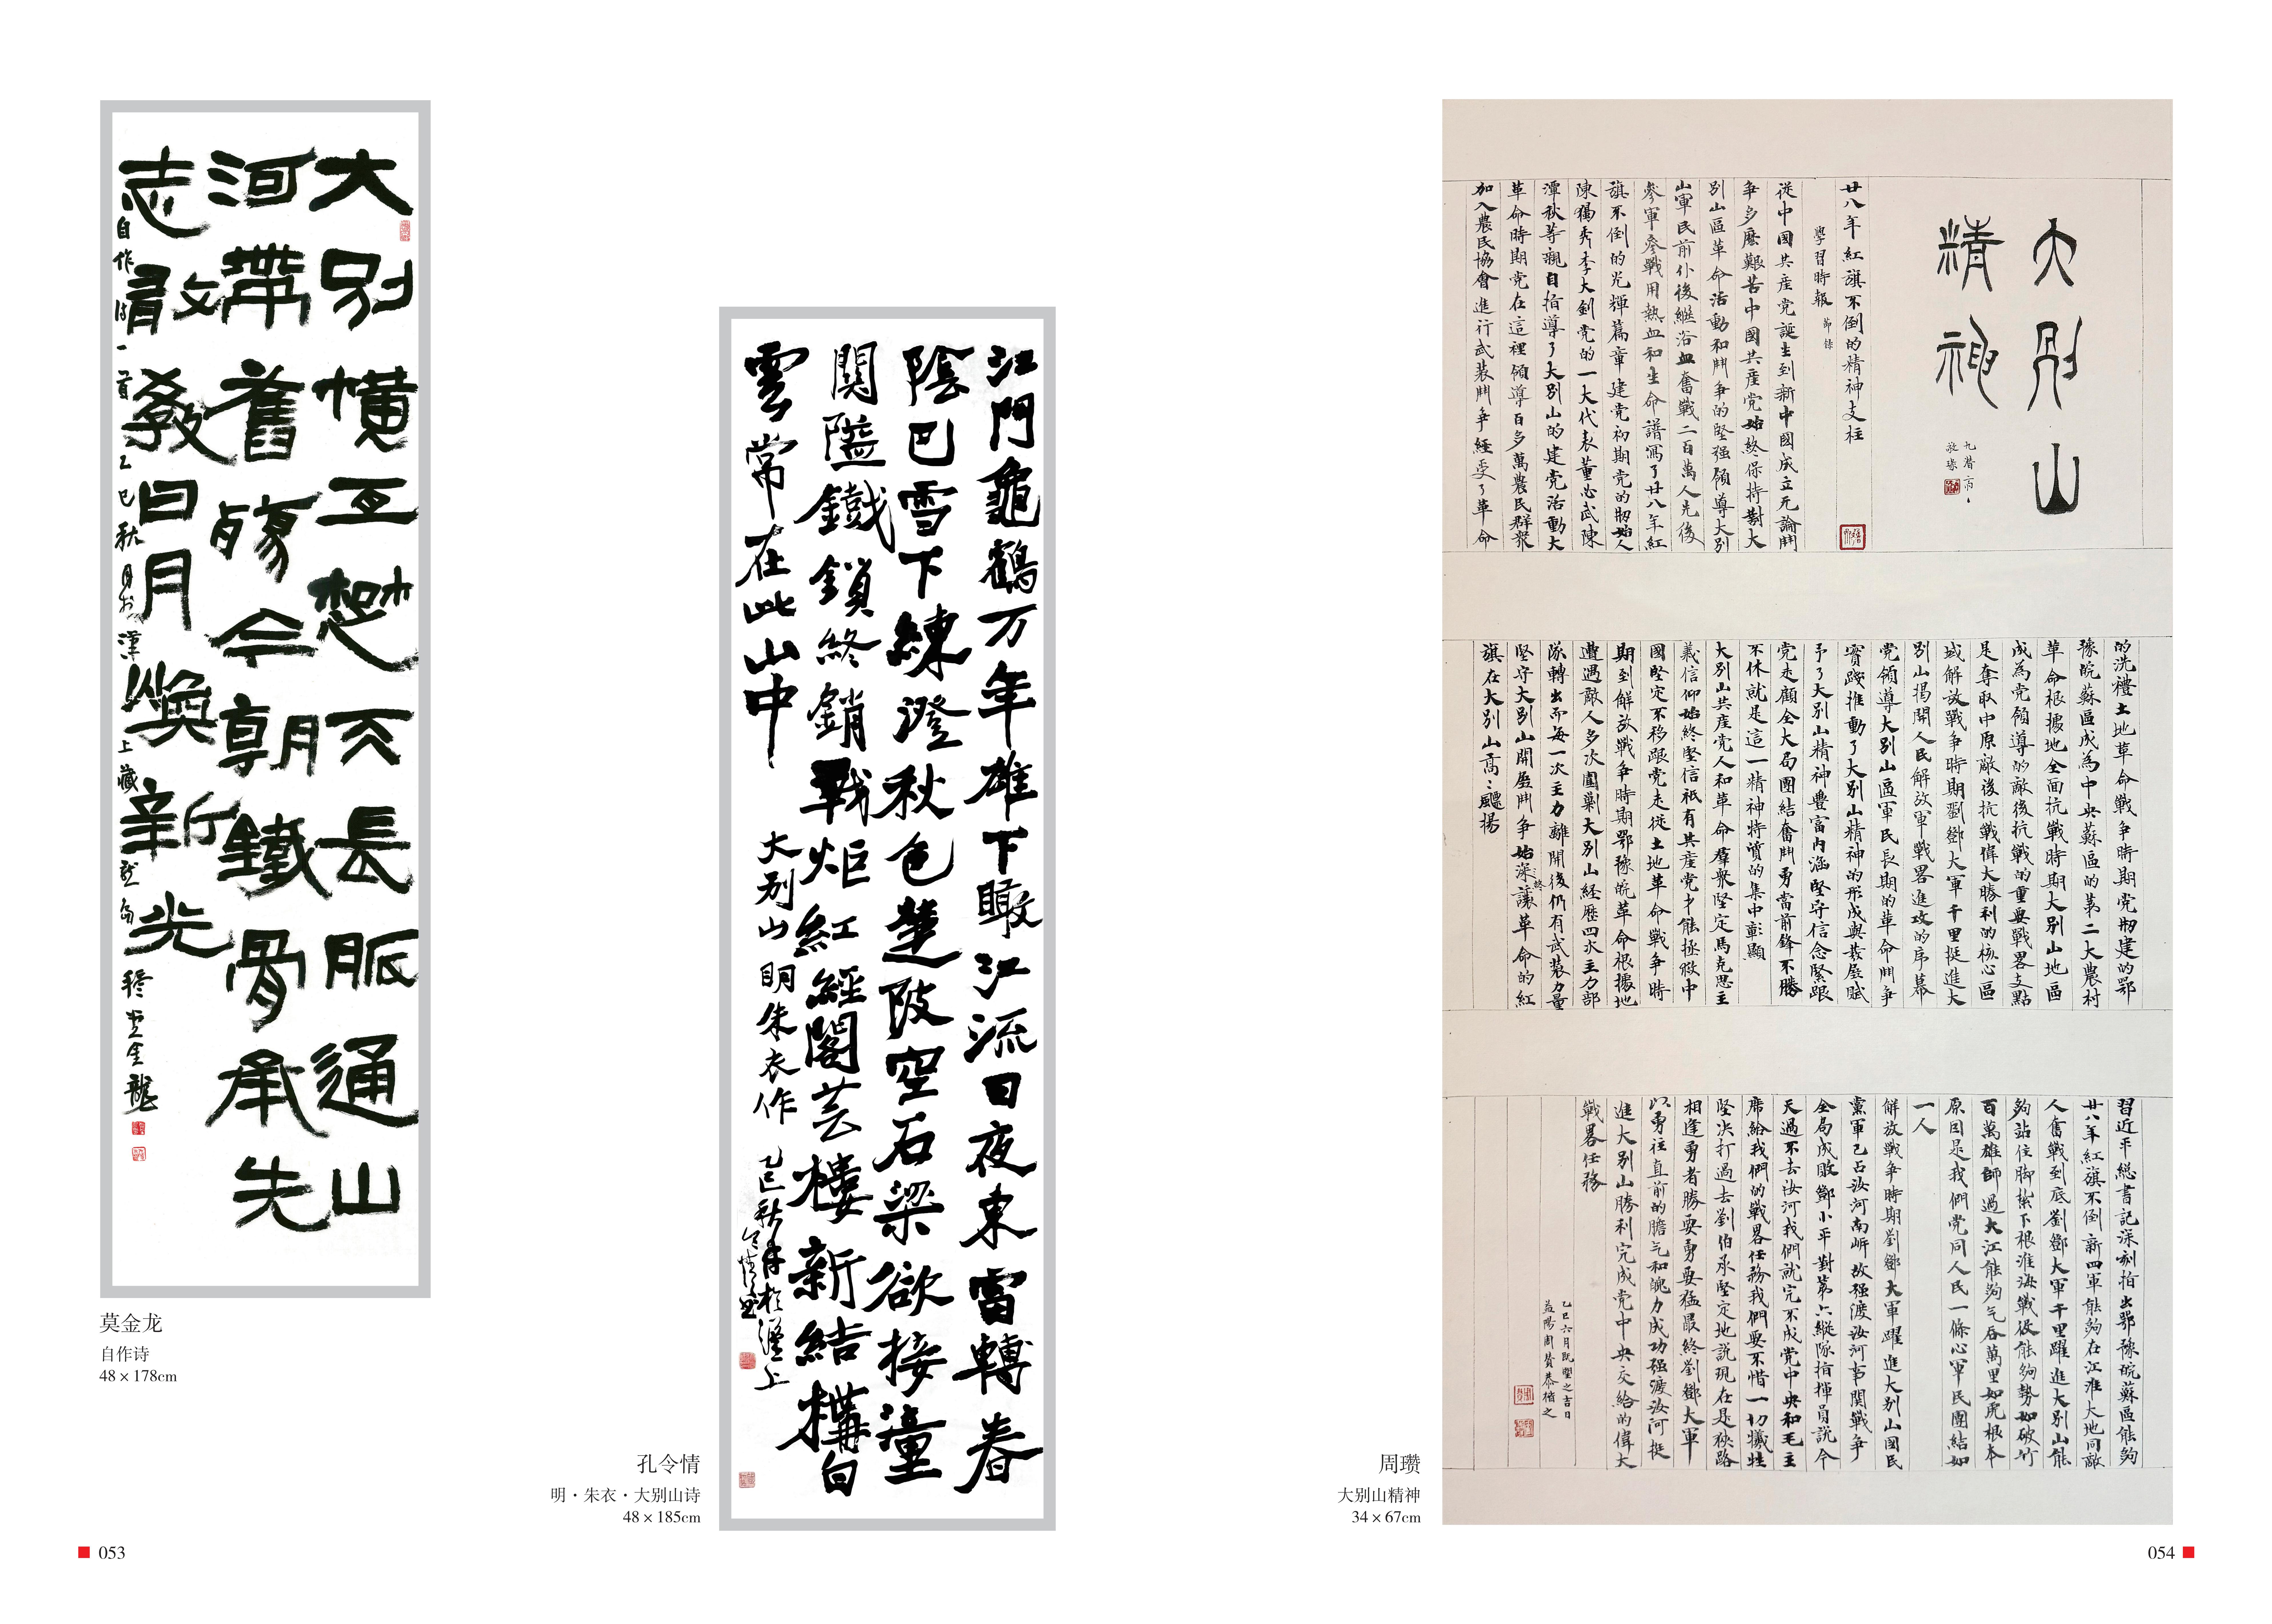 大别橫亘楚天長脈通山
河帶舊殤今朝鐵骨承先
志敢教日月焕新光
自作詩一首乙巳秋月於漢上藏龙岛 金龍
莫金龙
自作诗
48 × 178cm
053
江門龜鶴万年雄下瞰江流日夜東雷轉春
陰巴雪下練澄秋色楚陂空石梁欲接潼
關隘鐵鎖終銷戰炬紅經閣芸樓新結構白
雲常在此山中
大别山明朱衣作
乙巳秋月於漢上
令情書
孔令情
明·朱衣·大别山诗
48 × 185cm
大别山
精神
廿八年紅旗不倒的精神支柱
學習時報 節錄
從中國共産党誕生到新中國成立无論鬥
争多麽艱苦中國共産党始終保持對大
别山區革命活動和鬥争的堅强領導大别
山軍民前仆後繼浴血奮戰二百萬人先後
參軍參戰用熱血和生命譜寫了廿八年紅
旗不倒的光輝篇章建党初期党的刱始人
陳獨秀李大釗党的一大代表董必武陳
潭秋等親自指導了大别山的建党活動大
革命時期党在這裡領導百多萬農民群衆
加入農民協會進行武装鬥争經受了革命
的洗禮土地革命戰争時期党刱建的鄂
豫皖蘇區成為中央蘇區的第二大農村
革命根據地全面抗戰時期大别山地區
成為党領導的敵後抗戰的重要戰畧支點
是奪取中原敵後抗戰偉大勝利的核心區
域解放戰争時期劉鄧大軍千里挺進大
别山揭開人民解放軍戰畧進攻的序幕
党領導大别山區軍民長期的革命鬥争
實踐推動了大别山精神的形成與發展賦
予了大别山精神豐富内涵堅守信念緊跟
党走顧全大局團結奮鬥勇當前鋒不勝
不休就是這一精神特質的集中彰顯
大别山共産党人和革命羣衆堅定馬克思主
義信仰始終堅信祇有共産党才能拯救中
國堅定不移跟党走從土地革命戰争時
期到解放戰争時期鄂豫皖革命根據地
遭遇敵人多次圍剿大别山經歷四次主力部
隊轉出而每一次主力離開後仍有武装力量
堅守大别山開展鬥争始終讓革命的紅
旗在大别山高高飄揚
習近平總書記深刻指出鄂豫皖蘇區能夠
廿八年紅旗不倒新四軍能夠在江淮大地同敵
人奮戰到底劉鄧大軍千里躍進大别山能
夠站住脚紮下根淮海戰役能夠勢如破竹
百萬雄師過大江能夠气吞萬里如虎根本
原因是我們党同人民一條心軍民團結如
一人
解放戰争時期劉鄧大軍躍進大别山國民
黨軍已占汝河南岸故强渡汝河事關戰争
全局成敗鄧小平對第六縱隊指揮員説今
天過不去汝河我們就完不成党中央和毛主
席給我們的戰畧任務我們要不惜一切犧牲
堅决打過去劉伯承堅定地説現在是狹路
相逢勇者勝要勇要猛最終劉鄧大軍
以勇往直前的膽气和魄力成功强渡汝河挺
進大别山勝利完成党中央交給的偉大
戰畧任務
乙巳六月既望之吉日
益陽周瓚恭楷之
周瓒
大别山精神
34 × 67cm
054